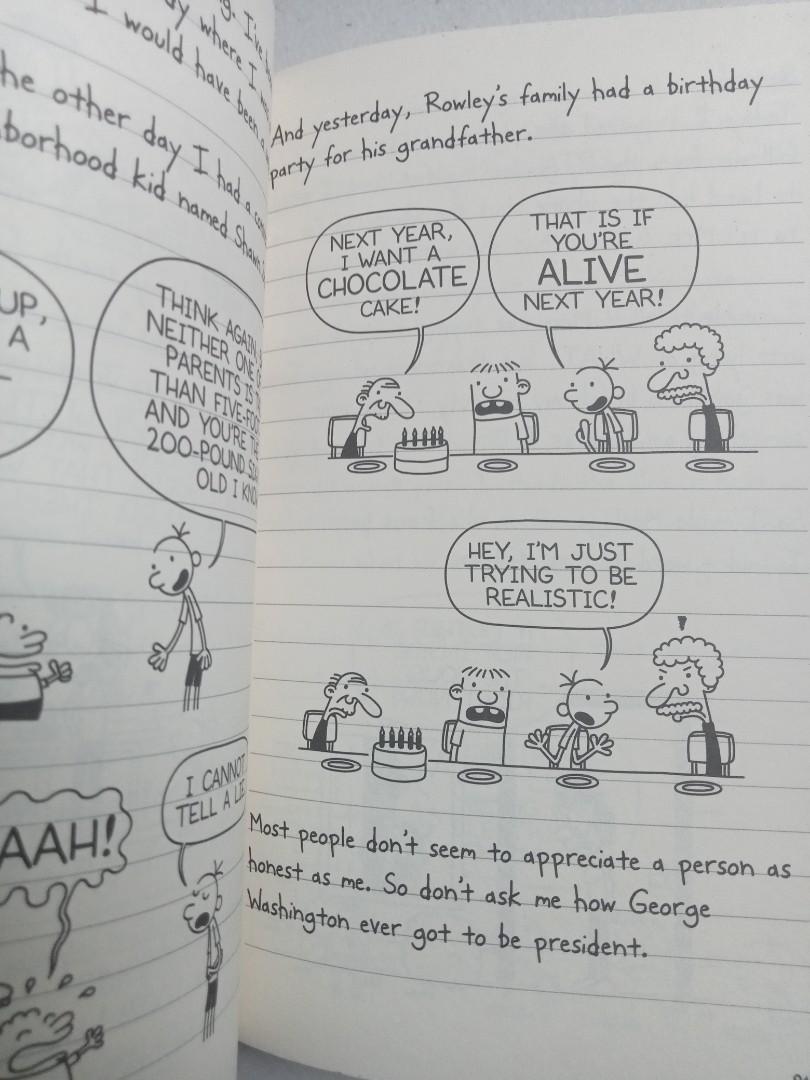 g. I've
y where I
I would have been a
he other day I had a
borhood kid named Shawn
UP,
A
THINK AGAIN
NEITHER ONE OF
PARENTS IS
THAN FIVE-FOO
AND YOU'RE THE
200-POUND
OLD I KNOW
I CANNOT
TELL A LIE
AAH!
And yesterday, Rowley's family had a birthday
party for his grandfather.
NEXT YEAR,
I WANT A
CHOCOLATE
CAKE!
THAT IS IF
YOU'RE
ALIVE
NEXT YEAR!
HEY, I'M JUST
TRYING TO BE
REALISTIC!
Most people don't seem to appreciate a person as
honest as me. So don't ask me how George
Washington ever got to be president.